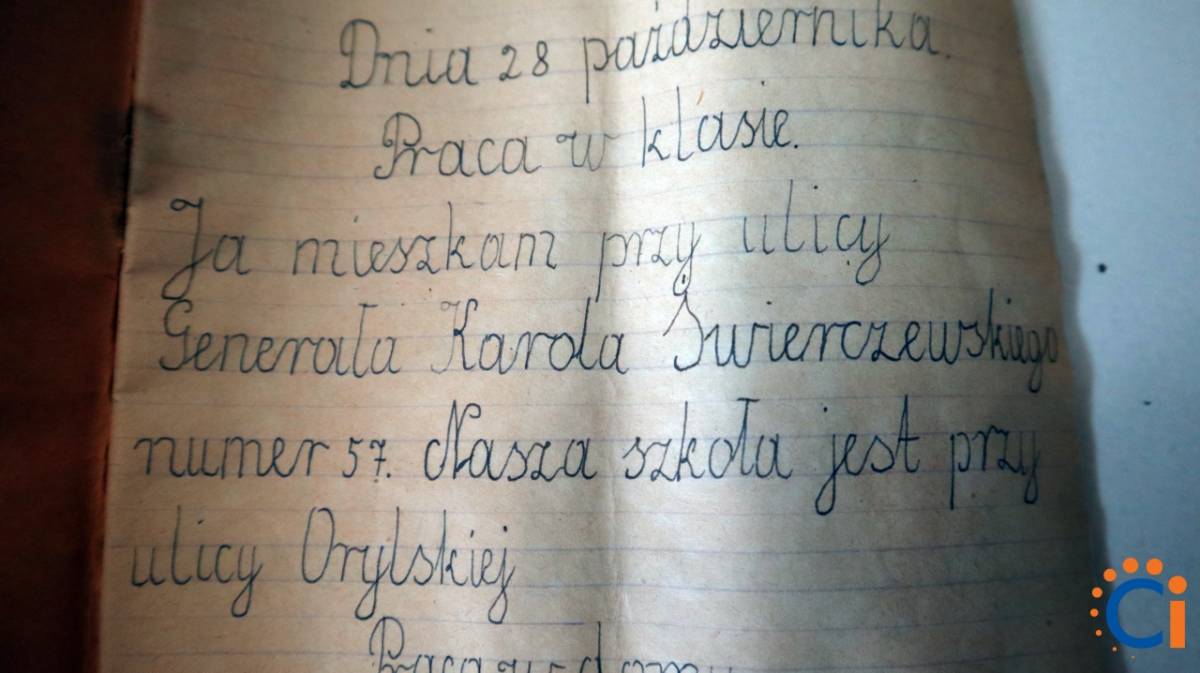 Dnia 28 października.
Praca w klasie.
Ja mieszkam przy ulicy
Generała Karola Świerczewskiego
numer 57. Nasza szkoła jest przy
ulicy Orylskiej
Praca w domu
Ci